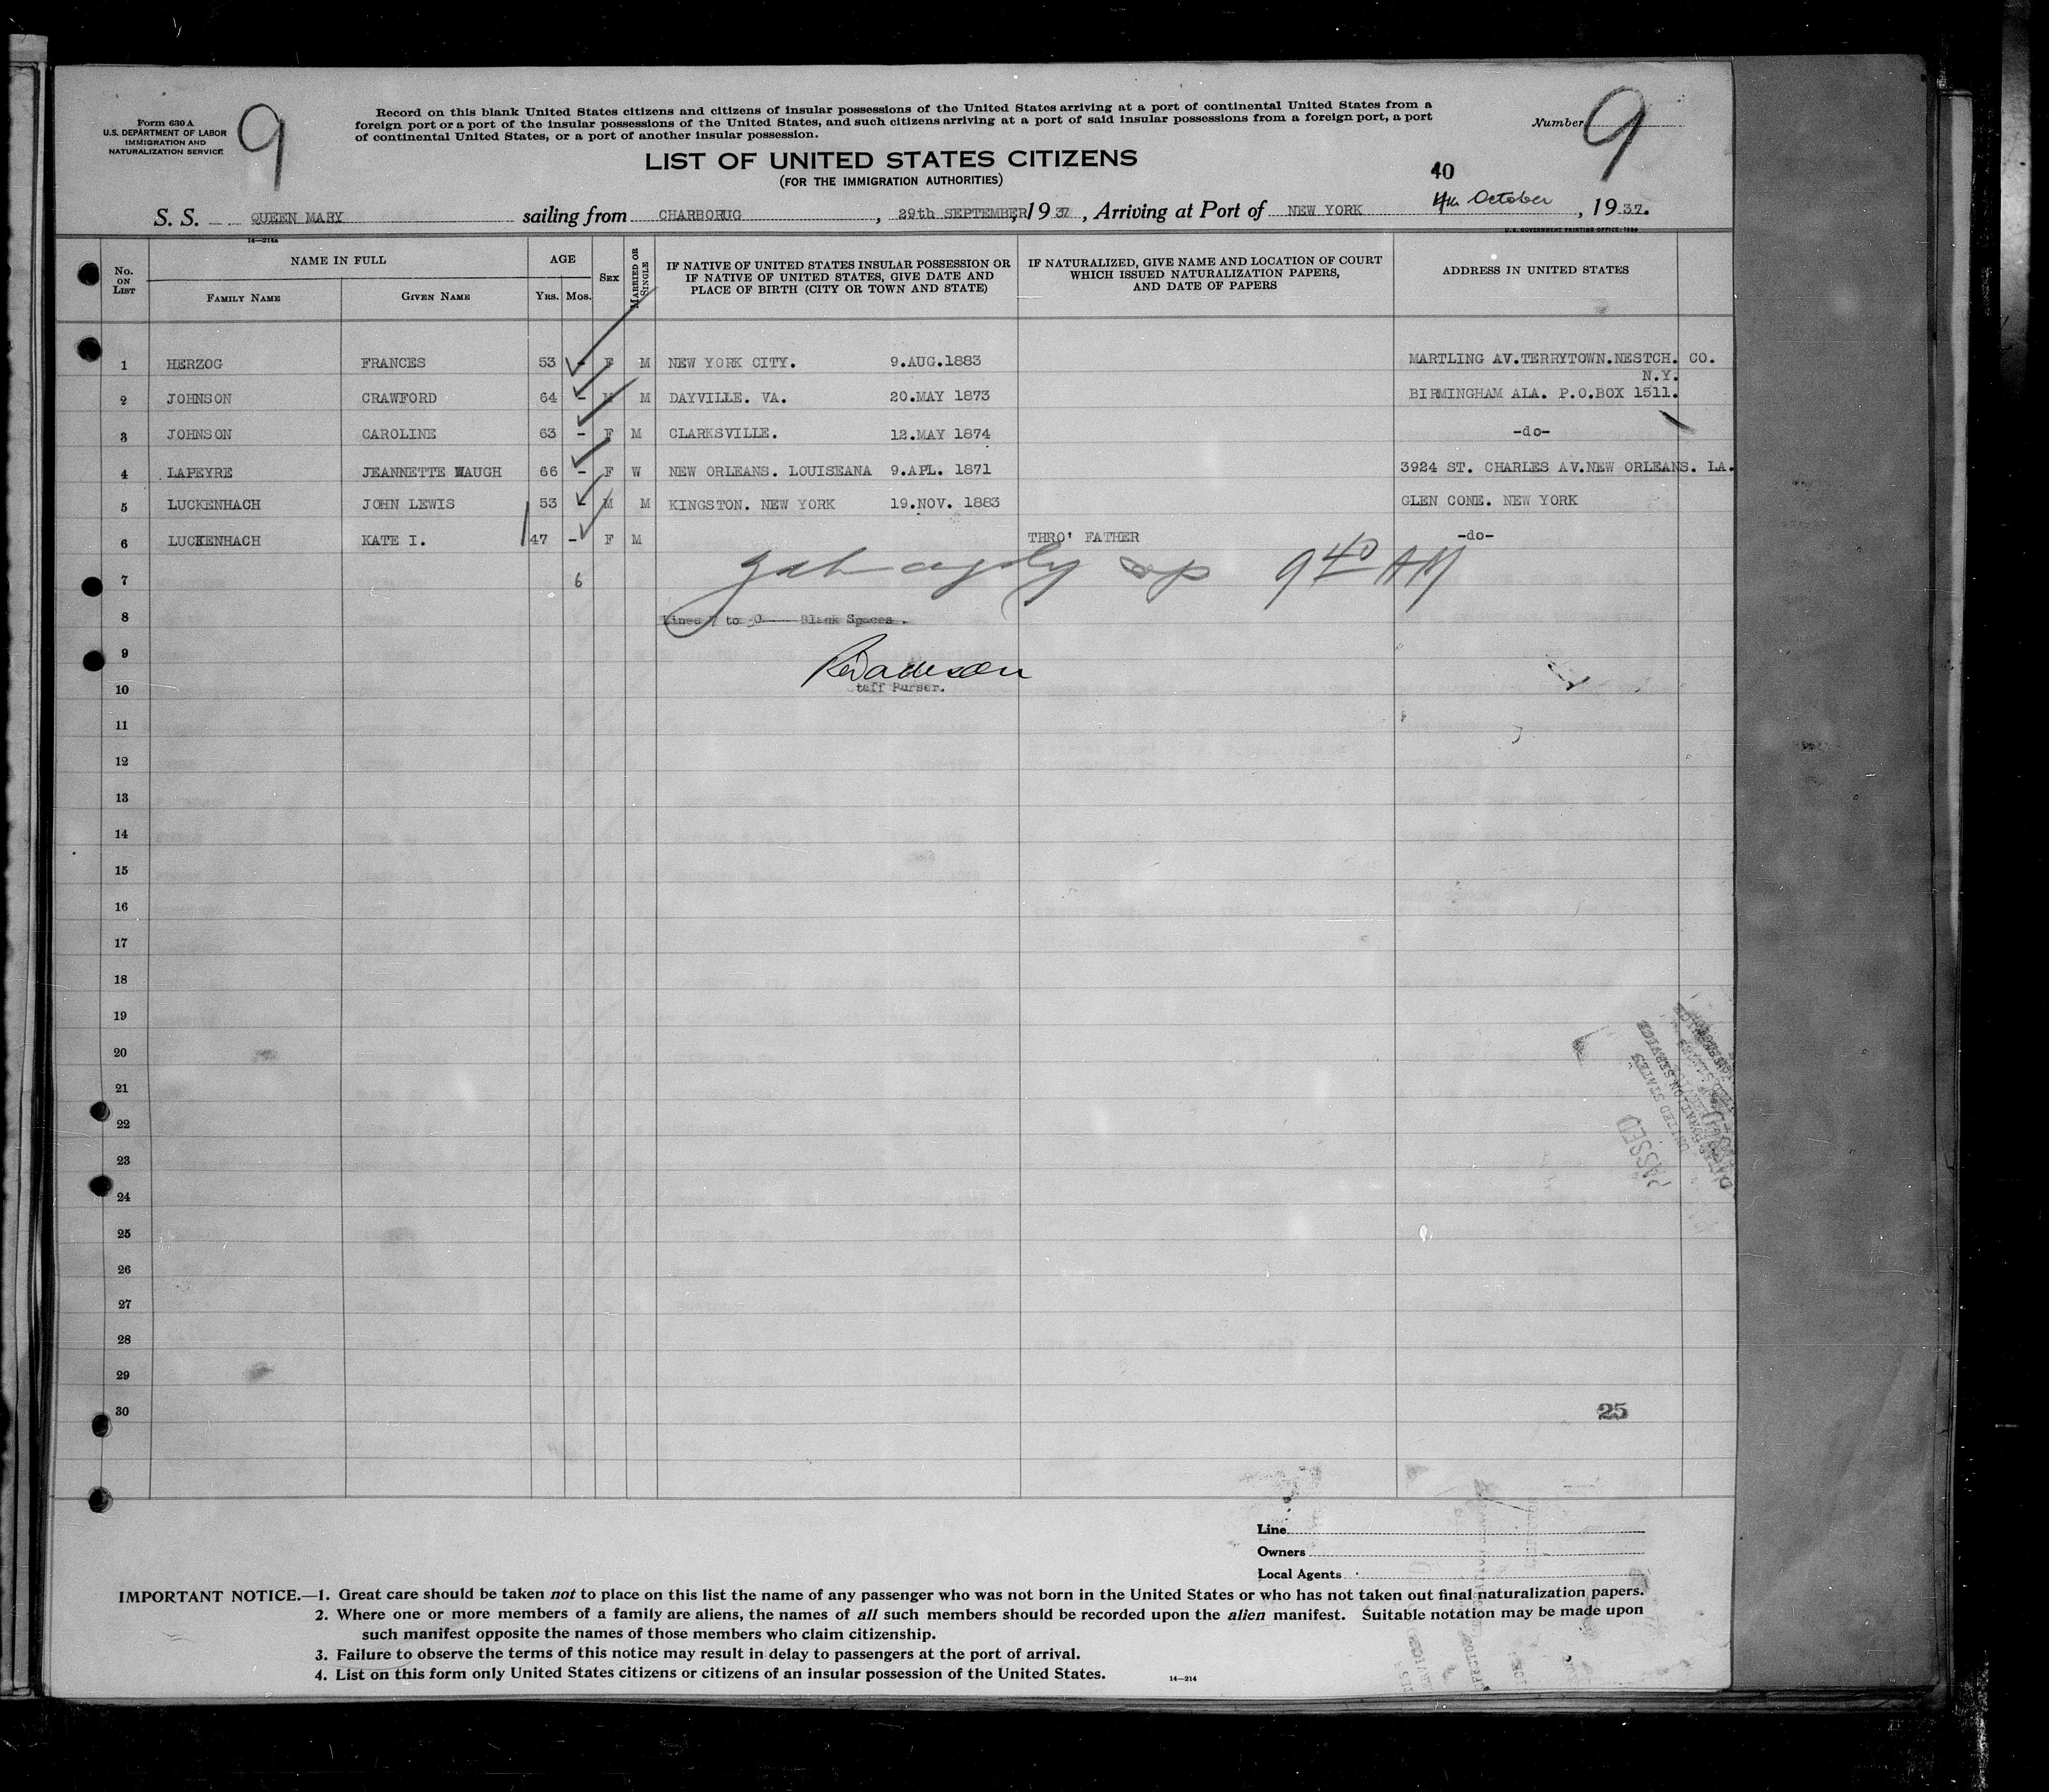 Form 630 A
U.S. DEPARTMENT OF LABOR
IMMIGRATION AND
NATURALIZATION SERVICE
9
Record on this blank United States citizens and citizens of insular possessions of the United States arriving at a port of continental United States from a
foreign port or a port of the insular possessions of the United States, and such citizens arriving at a port of said insular possessions from a foreign port, a port
of continental United States, or a port of another insular possession.
Number 9
LIST OF UNITED STATES CITIZENS
(FOR THE IMMIGRATION AUTHORITIES)
40
S. S. QUEEN MARY sailing from CHARBORUG, 29th SEPTEMBER, 1937, Arriving at Port of NEW YORK 4th October, 1937.
14—214a
U.S. GOVERNMENT PRINTING OFFICE: 1934
No. ON LIST
NAME IN FULL
FAMILY NAME GIVEN NAME
AGE
YRS. MOS.
SEX
MARRIED OR SINGLE
IF NATIVE OF UNITED STATES INSULAR POSSESSION OR
IF NATIVE OF UNITED STATES, GIVE DATE AND
PLACE OF BIRTH (CITY OR TOWN AND STATE)
IF NATURALIZED, GIVE NAME AND LOCATION OF COURT
WHICH ISSUED NATURALIZATION PAPERS,
AND DATE OF PAPERS
ADDRESS IN UNITED STATES
1 HERZOG FRANCES 53 - F M NEW YORK CITY. 9.AUG.1883 MARTLING AV.TERRYTOWN.NESTCH. CO.
N.Y.
2 JOHNSON CRAWFORD 64 - M M DAYVILLE. VA. 20.MAY 1873 BIRMINGHAM ALA. P.O.BOX 1511.
3 JOHNSON CAROLINE 63 - F M CLARKSVILLE. 12.MAY 1874 -do-
4 LAPEYRE JEANNETTE WAUGH 66 - F W NEW ORLEANS. LOUISEANA 9.APL. 1871 3924 ST. CHARLES AV.NEW ORLEANS. LA.
5 LUCKENHACH JOHN LEWIS 53 - M M KINGSTON. NEW YORK 19.NOV. 1883 GLEN CONE. NEW YORK
6 LUCKENHACH KATE I. 47 - F M THRO' FATHER -do-
7 6
9 40 AM
8 Lines to Blank Spaces.
9
taff Purser.
10
11
12
13
14
15
16
17
18
19
20
21
22
23
24
25
26
27
28
29
30
PASSED
UNITED STATES
IMMIGRATION SERVICE
25
Line
Owners
Local Agents
IMPORTANT NOTICE.—1. Great care should be taken not to place on this list the name of any passenger who was not born in the United States or who has not taken out final naturalization papers.
2. Where one or more members of a family are aliens, the names of all such members should be recorded upon the alien manifest. Suitable notation may be made upon
such manifest opposite the names of those members who claim citizenship.
3. Failure to observe the terms of this notice may result in delay to passengers at the port of arrival.
4. List on this form only United States citizens or citizens of an insular possession of the United States.
14—214